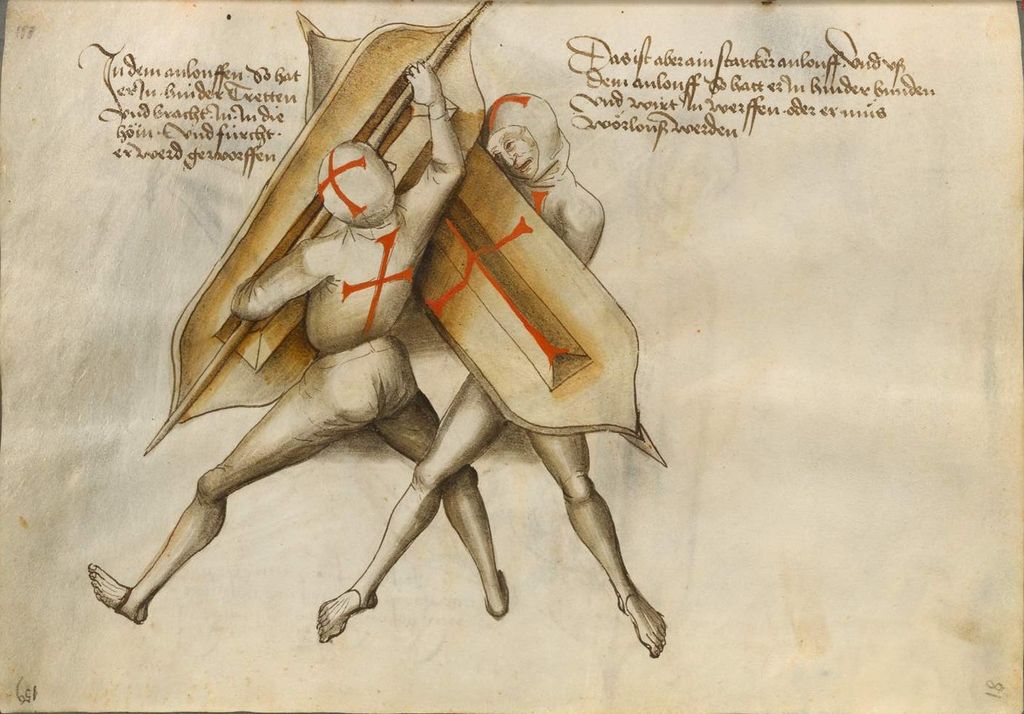 In dem anlouffen So hat
er In hinder Tretten
Vnd bracht In In die
höin Vnd fürcht
er werd geworffen
Das ist aber ain starcker anlouff Vnd vß
Dem anlouff So hatt er In hinder bunden
Vnd wirt In werffen oder er muis
wörlouß werden